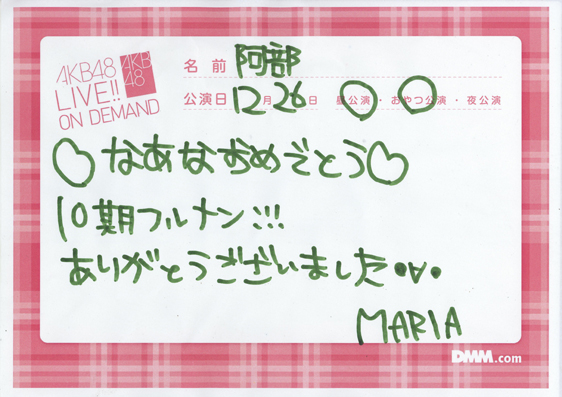 AKB48
LIVE!!
ON DEMAND
AKB
48
名前 阿部
公演日 12月26日 昼公演・おやつ公演・夜公演
♡なあなおめでとう♡
10期フルナン!!!
ありがとうございました•v•
MARIA
DMM.com